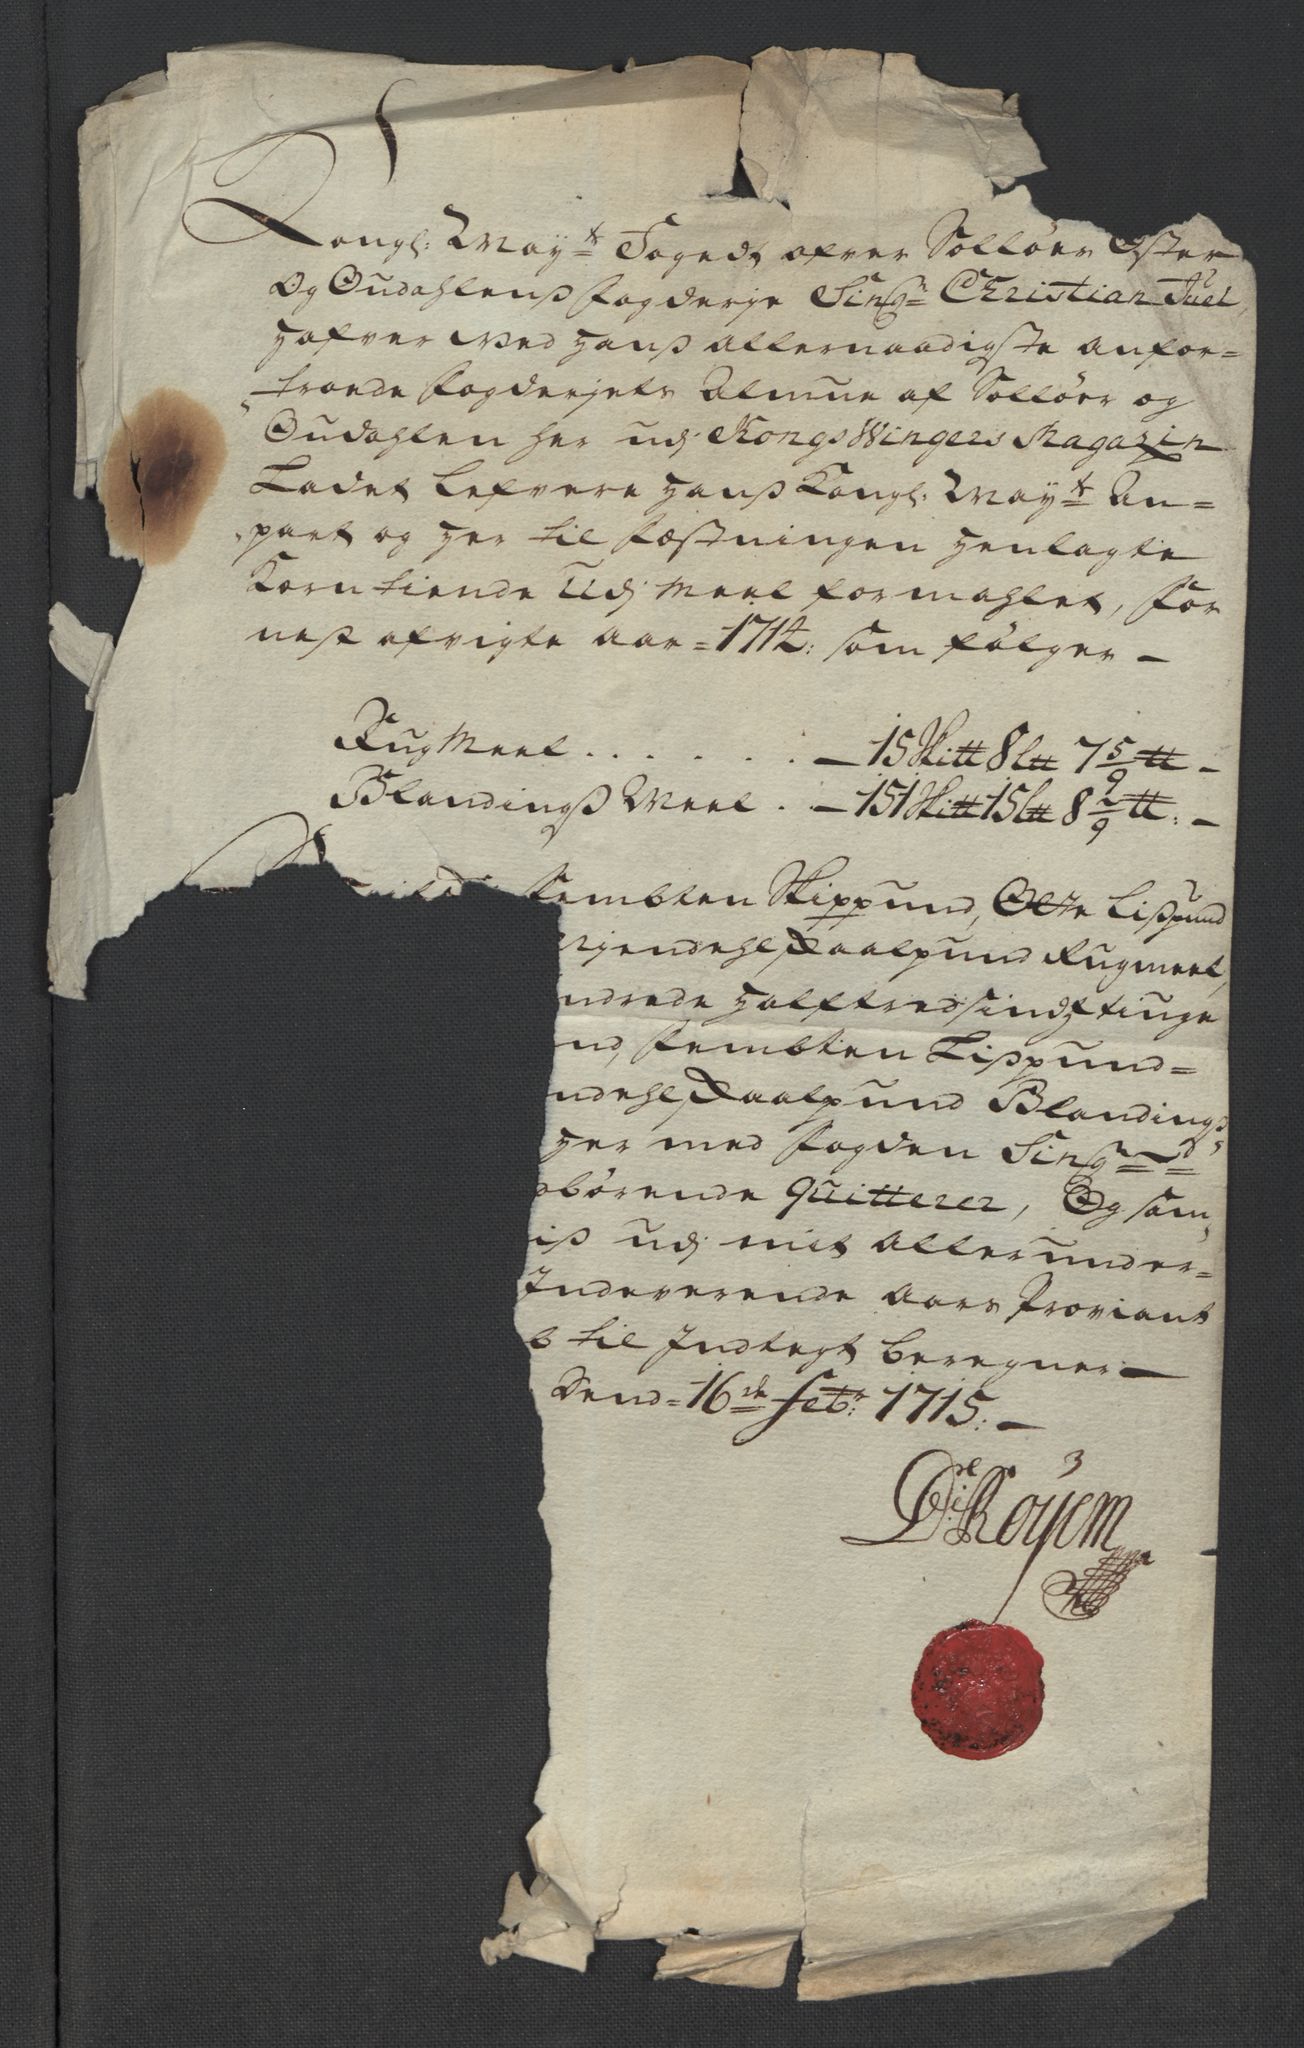 Kongl: May:t Fogedt ofver Solløer Øster
Og Oudahlenß fogderje Sing:r Christian Juel,
hafver ved hanß allernaadigste anfor=
troede fogderjets Almue af Solløer og
Oudahlen her udj KongsWingers Magazin
Ladet Lefvere hanß Kongl: May:t An=
part og her til fæstningen henlagte
Korn tiende Udj Meel formahlet, for
nest afvigte aar = 1714: som følger –
Rug Meel . . . . . . – 15 Skitt 8 Ltt 7 5/9 tt –
Blandingß Meel . . – 151 Skitt 15 Ltt 8 2/9 tt: –
fembten Skippund, Otte Lißpund
njendehl Skaalpund Rugmeel,
ndrede halftredsindstiuge
nd, fembten Lißpund =
ndehl Skaalpund Blandings
her med fogden Sing:r
børende quitterer, Og som
iß udj mit allerunder=
Indeverende aars Proviant
til Indtegt beregner –
Dend = 16de febr: 1715: –
Röyem